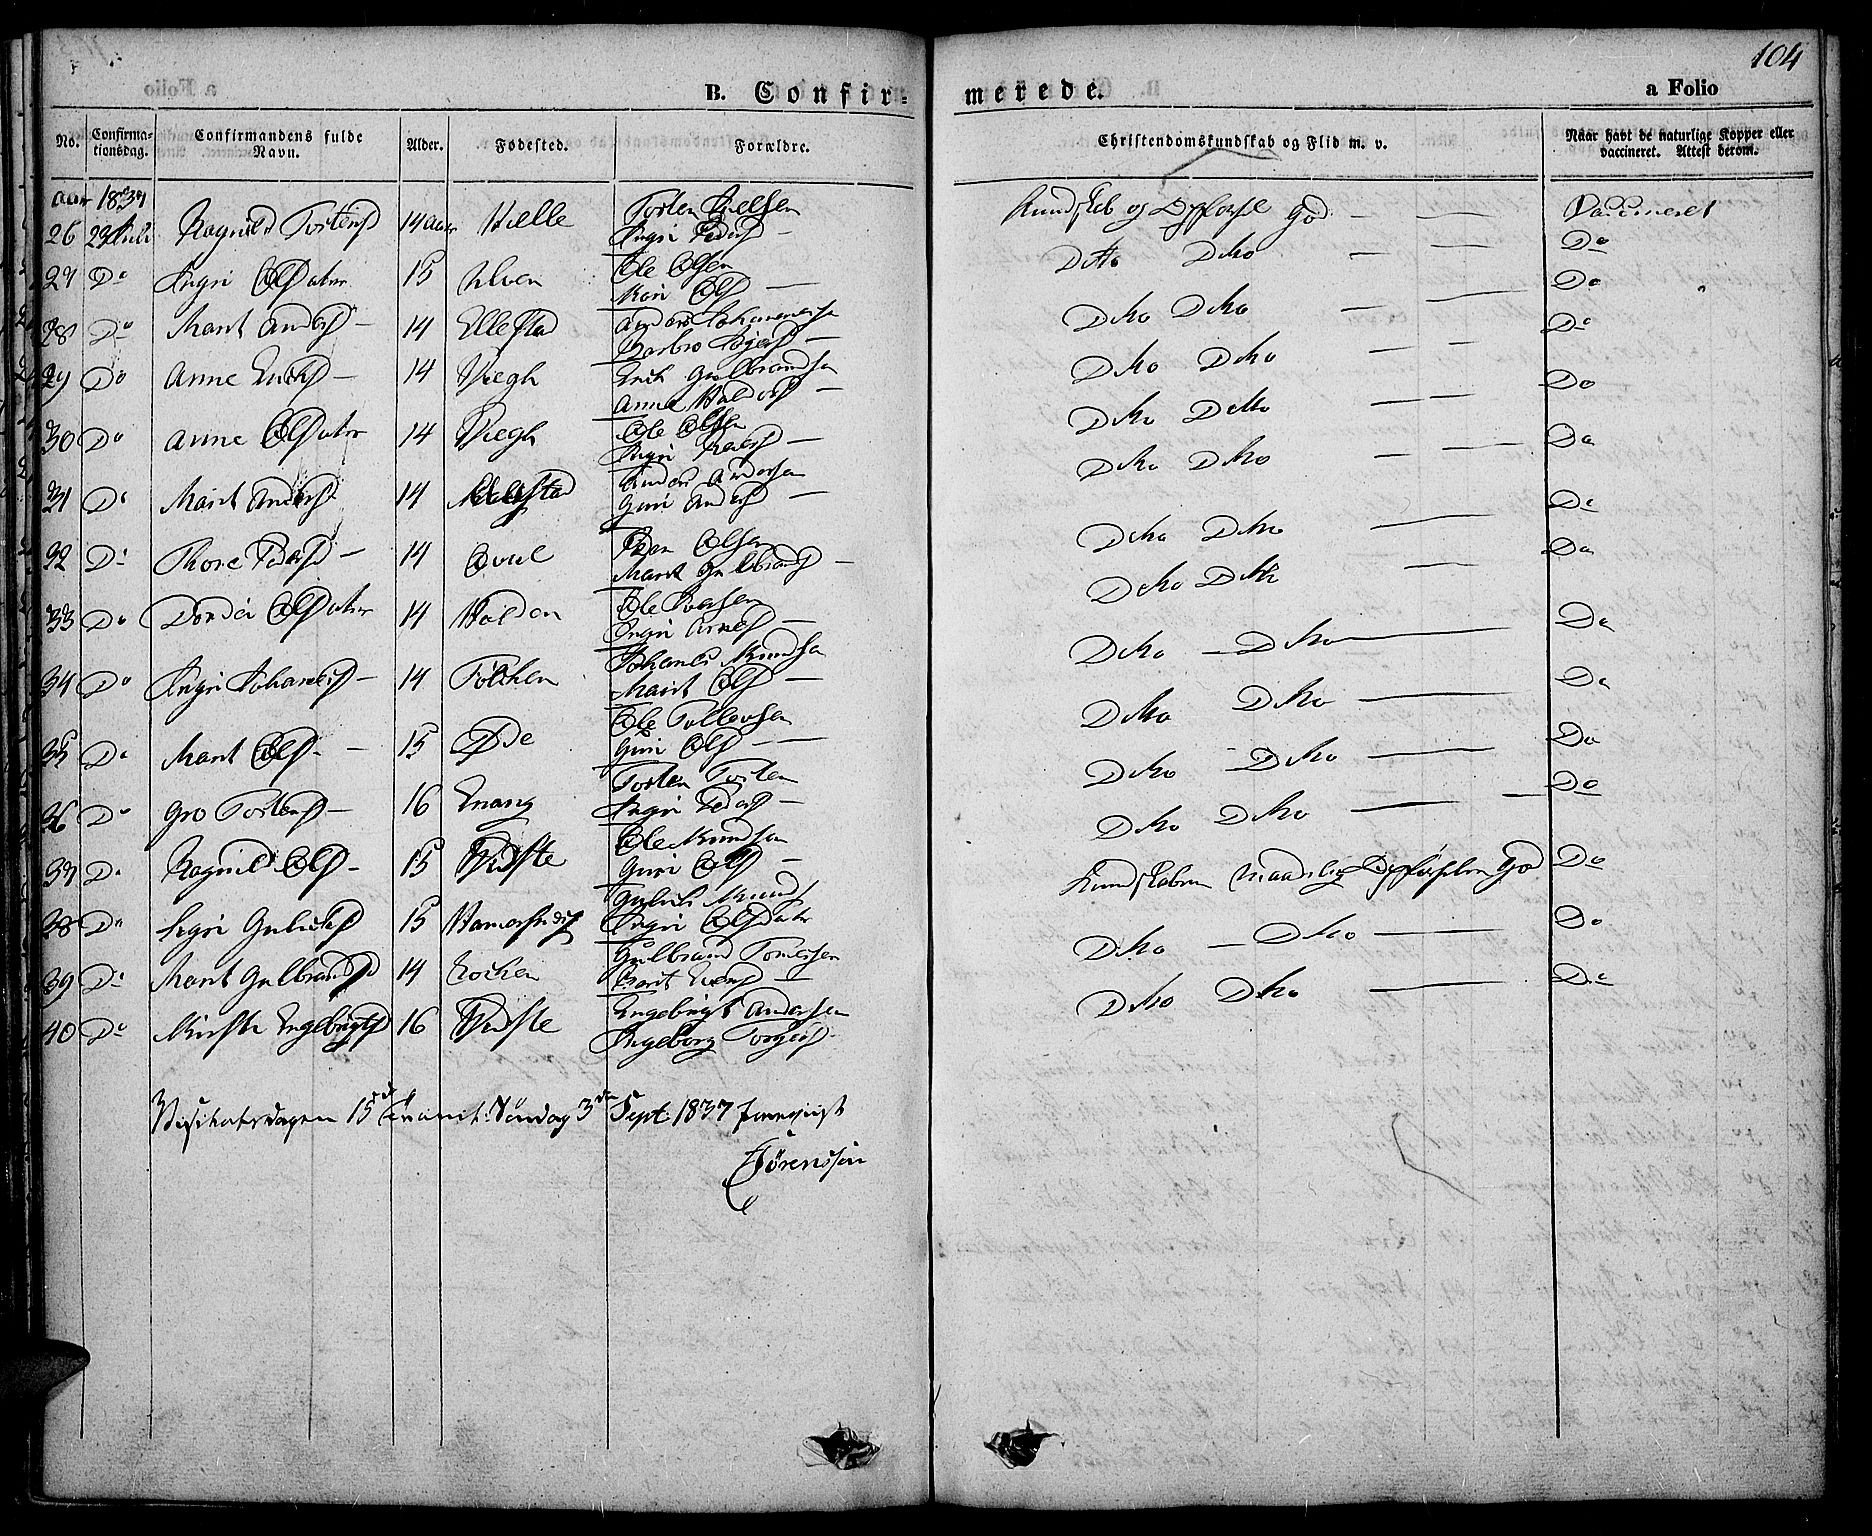 104
B. Confir= merede. a Folio
No. Confirma-tionsdag. Confirmandens fulde Navn. Alder. Fødested. Forældre. Christendomskundskab og Flid m. v. Naar havt de naturlige Kopper eller vaccineret. Attest derom.
aar 1837
26 23 Juli Ragnild Torstensd 14 aar Helle Torsten Nielsen Kundskab og Opførsel God — — Vaccineret
Ingri Pedersd —
27 Do Ingri Olsdatter 15 Ulven Ole Olsen Ditto Ditto — — Do
Mari Olsd —
28 Do Marit Andersd — 14 Ellestad Anders Johannesen Ditto Ditto — — Do
Barbro —
29 Do Anne Eriksd — 14 Viegh Erik Gulbrandsen Ditto Ditto — — Do
Anne Haldorsd —
30 Do Anne Olsdatter 14 Viegh Ole Olsen Ditto Ditto — — Do
Ingri —
31 Do Marit Andersd 14 Anders Andersen Ditto Ditto — — Do
Guri Andersd —
32 Do Thore Pedersd — 14 Peder Olsen Ditto Ditto — Do
Marit Gulbrandsd —
33 Do Dordei Olsdatter 14 Halden Ole Iversen Ditto Ditto — Do
Ingri Arnesd —
34 Do Ingri Johannesd — 14 Johanes Knudsen Ditto — Ditto — Do
Marit Olsd —
35 Do Marit Olsd — 15 Øde Ole Tollevsen Ditto Ditto — Do
Guri Olsd —
36 Do Gro Torstensd — 16 Enang Torsten Torsten Ditto Ditto — Do
Ingri Pedersd —
37 Do Ragnild Olsd — 15 Ole Knudsen Ditto Ditto — Do
Guri Olsd —
38 Do Sigri Guliksd 15 Gulik Knuds Kundskaben maadelig Opførselen God Do
Ingri Olsdatter
39 Do Marit Gulbrandsd 14 Gulbrand Ditto — Ditto — Do
Marit —
40 Do Engebrigtsd 16 Engebrigt Andersen Ditto Ditto — Do
Ingeborg
Visitatsdagen 15de Trinit: Søndag 3de Sept: 1837
Sørenssen